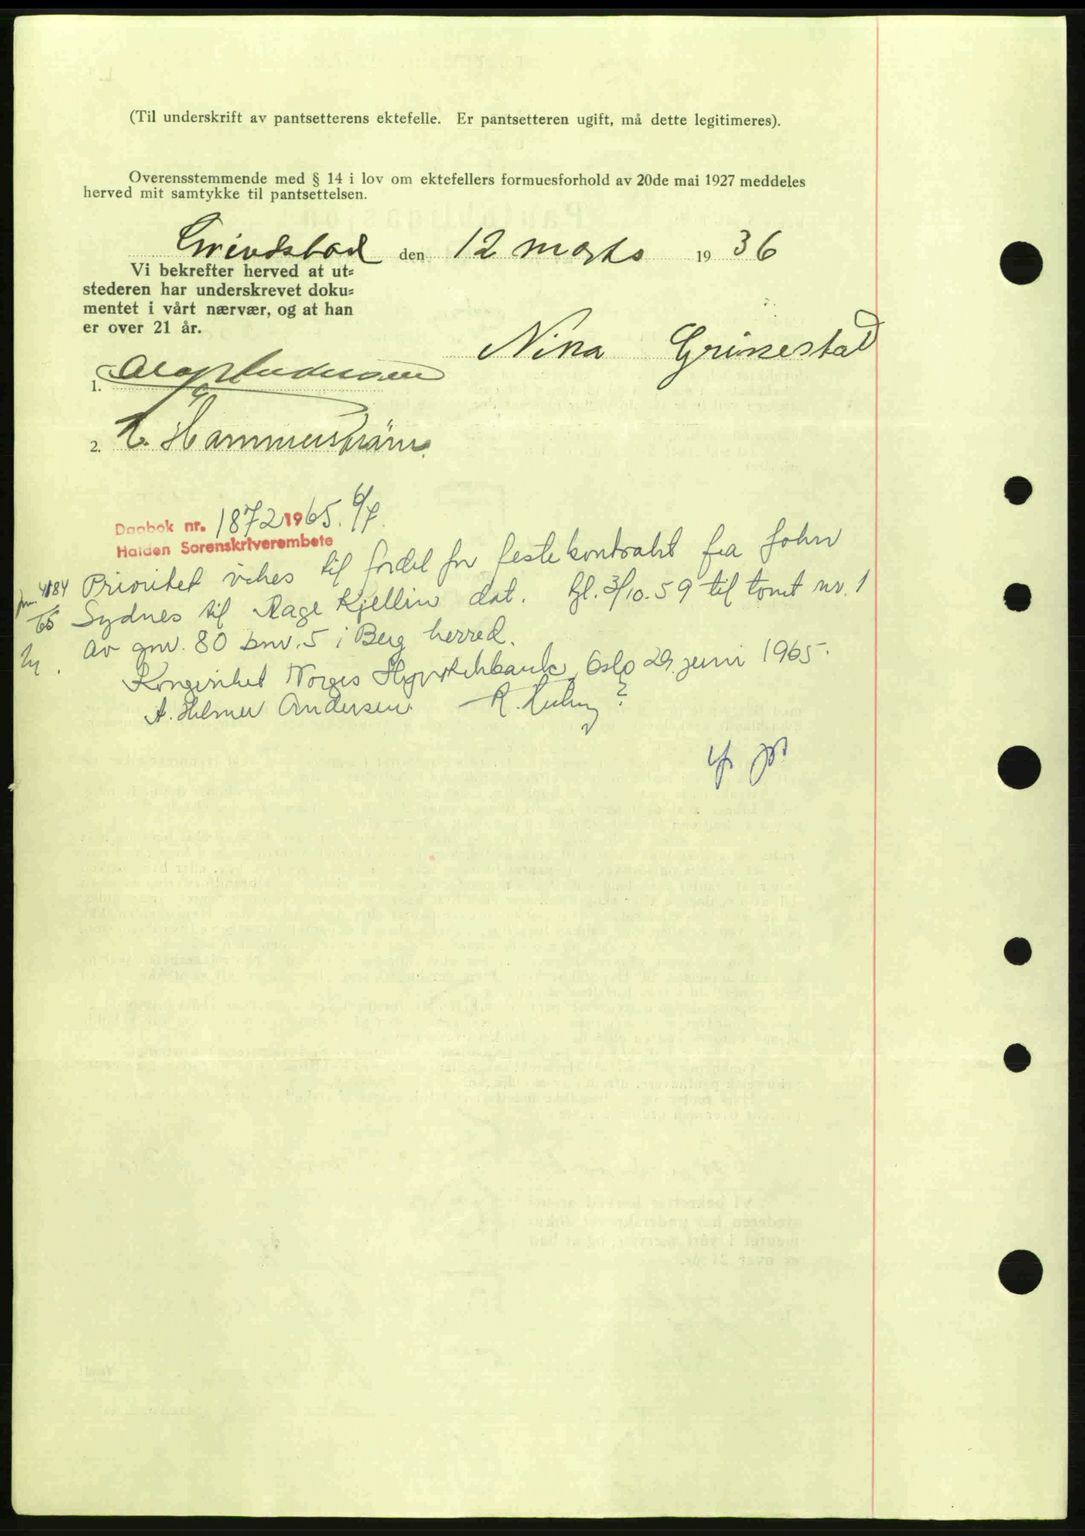 (Til underskrift av pantsetterens ektefelle. Er pantsetteren ugift, må dette legitimeres).
Overensstemmende med § 14 i lov om ektefellers formuesforhold av 20de mai 1927 meddeles
herved mit samtykke til pantsettelsen.
den 12 marts 1936
Vi bekrefter herved at ut=
stederen har underskrevet doku=
mentet i vårt nærvær, og at han
er over 21 år.
Nina Grimestad
1.
2. Hammerstrøm
Dagbok nr. 1872 1965. 6/7.
Halden Sorenskriverembete
Prioritet vikes til fordel for festekontrakt fra John
Sydnes til Aage Kjellin dat. tgl. 3/10.59 til tomt nr. 1
av gnr. 80 bnr. 5 i Berg herred.
Kongeriket Norges Hypotekbank, Oslo 29. juni 1965.
A. Hilmer Andersen. R. ?